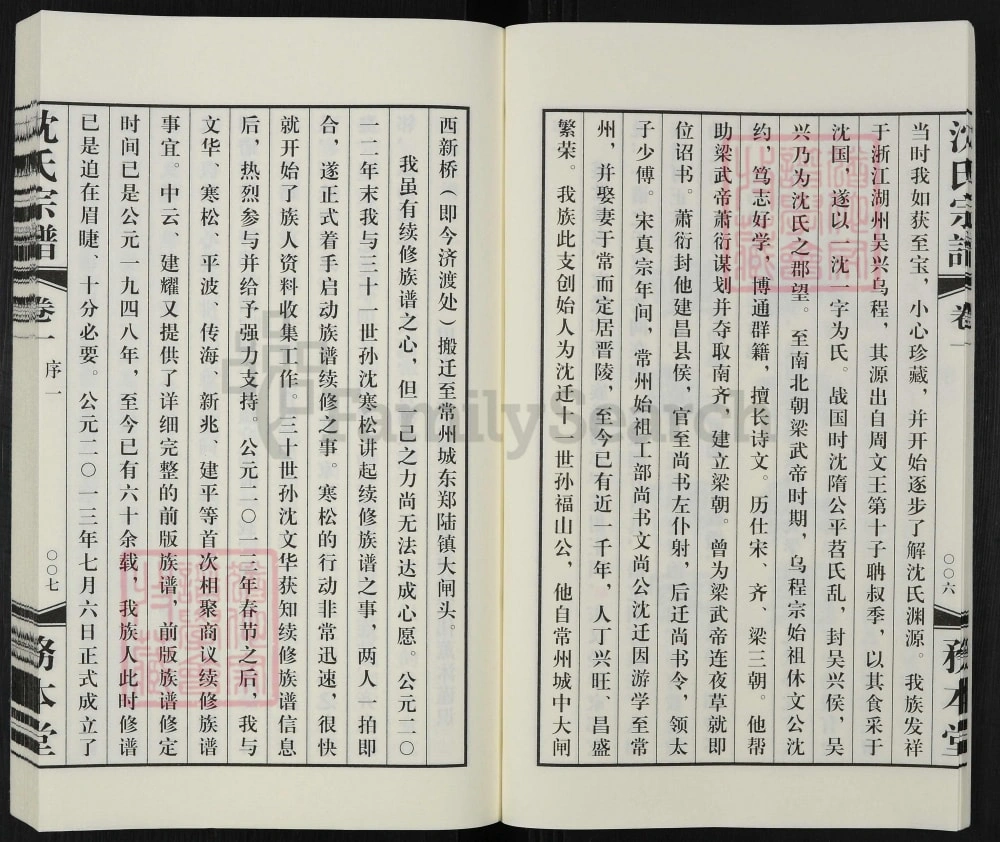 沈氏宗譜
卷一
〇〇六
務本堂
当时我如获至宝，小心珍藏，并开始逐步了解沈氏渊源。我族发祥
于浙江湖州吴兴乌程，其源出自周文王第十子聃叔季，以其食采于
沈国，遂以一沈一字为氏。战国时沈隋公平苕氏乱，封吴兴侯，吴
兴乃为沈氏之郡望。至南北朝梁武帝时期，乌程宗始祖休文公沈
约，笃志好学，博通群籍，擅长诗文。历仕宋、齐、梁三朝。他帮
助梁武帝萧衍谋划并夺取南齐，建立梁朝。曾为梁武帝连夜草就即
位诏书。萧衍封他建昌县侯，官至尚书左仆射，后迁尚书令，领太
子少傅。宋真宗年间，常州始祖工部尚书文尚公沈迁因游学至常
州，并娶妻于常而定居晋陵，至今已有近一千年，人丁兴旺、昌盛
繁荣。我族此支创始人为沈迁十一世孙福山公，他自常州城中大闸
西新桥（即今济渡处）搬迁至常州城东郑陆镇大闸头。
我虽有续修族谱之心，但一己之力尚无法达成心愿。公元二〇
一二年末我与三十一世孙沈寒松讲起续修族谱之事，两人一拍即
合，遂正式着手启动族谱续修之事。寒松的行动非常迅速，很快
就开始了族人资料收集工作。三十世孙沈文华获知续修族谱信息
后，热烈参与并给予强力支持。公元二〇一三年春节之后，我与
文华、寒松、平波、传海、新兆、建平等首次相聚商议续修族谱
事宜。中云、建耀又提供了详细完整的前版族谱，前版族谱修定
时间已是公元一九四八年，至今已有六十余载，我族人此时修谱
已是迫在眉睫、十分必要。公元二〇一三年七月六日正式成立了
沈氏宗譜
卷一
序一
〇〇七
務本堂
FamilySearch